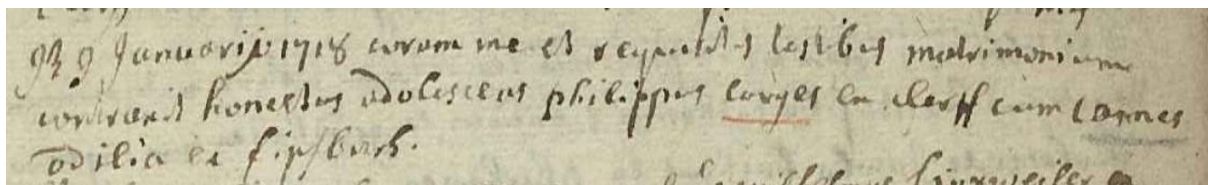 9 Januarij 1718 coram me et requisitis testibus matrimonium
contraxit honestus adolescens philippus lorges ex clerff cum Cannes
odilia ex